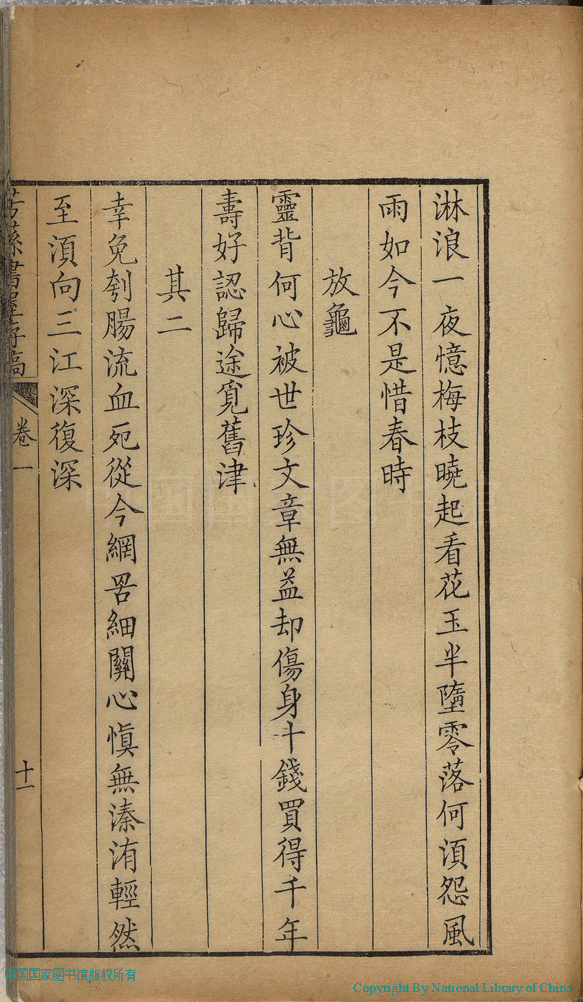 淋浪一夜憶梅枝曉起看花玉半墮零落何湏怨風
雨如今不是惜春時
放龜
靈背何心被世珍文章無益却傷身十錢買得千年
壽好認歸途覓舊津
其二
幸免刳腸流血死從今網罟細關心慎無溱洧輕然
至湏向三江深復深
書屋存稿
卷一
十一
中国国家图书馆版权所有
Copyright By National Library of China